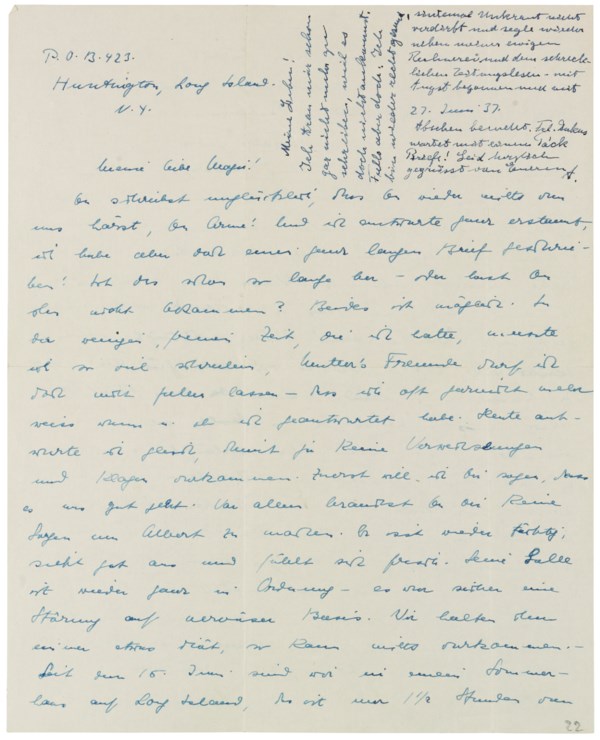 P.O.B. 423.
Huntington, Long Island.
N.Y.
Meine Lieben!
Ich trau mir schon
gar nicht mehr zu
schreiben, weil es
doch nicht ankommt.
Falls aber doch: Ich
bin wieder recht gesund,
sintemal Unkraut nicht
verdirbt und segle wieder
neben meiner ewigen
Rechnerei und dem schreck-
lichen Zeitungslesen - mit
Angst begonnen und mit
27. Juni 37.
Abschen beendet.
wartet mit einem Pack
Briefe! Seid herzlich
gegrüsst von Eurem
Meine liebe Maja!
Du schreibst unglücklich, dass Du wieder nichts von
uns hörst, Du Arme! Und ich antworte ganz erstaunt,
ich habe aber doch einen ganz langen Brief geschrie-
ben! Ist das schon so lange her - oder hast Du
ihn nicht bekommen? Beides ist möglich. In
der wenigen freien Zeit, die ich hatte, musste
ich so viel schreiben, Mutter's Freunde darf ich
doch nicht fallen lassen - dass ich oft garnicht mehr
weiss wann u. ob ich geantwortet habe. Heute ant-
worte ich gleich, damit ja keine Verwechslungen
und Klagen vorkommen. Zuerst will ich Dir sagen, dass
es uns gut geht. Vor allem brauchst Du Dir keine
Sorgen um Albert zu machen. Er ist wieder
sieht gut aus und fühlt sich frisch. Seine Galle
ist wieder ganz in Ordnung - es war sicher eine
Störung auf nervöser Basis. Wir halten den
immer etwas Diät, so kann nichts vorkommen. -
Seit dem 15. Juni sind wir in einem Sommer-
haus auf Long Island, das ist nur 1½ Stunden von
22